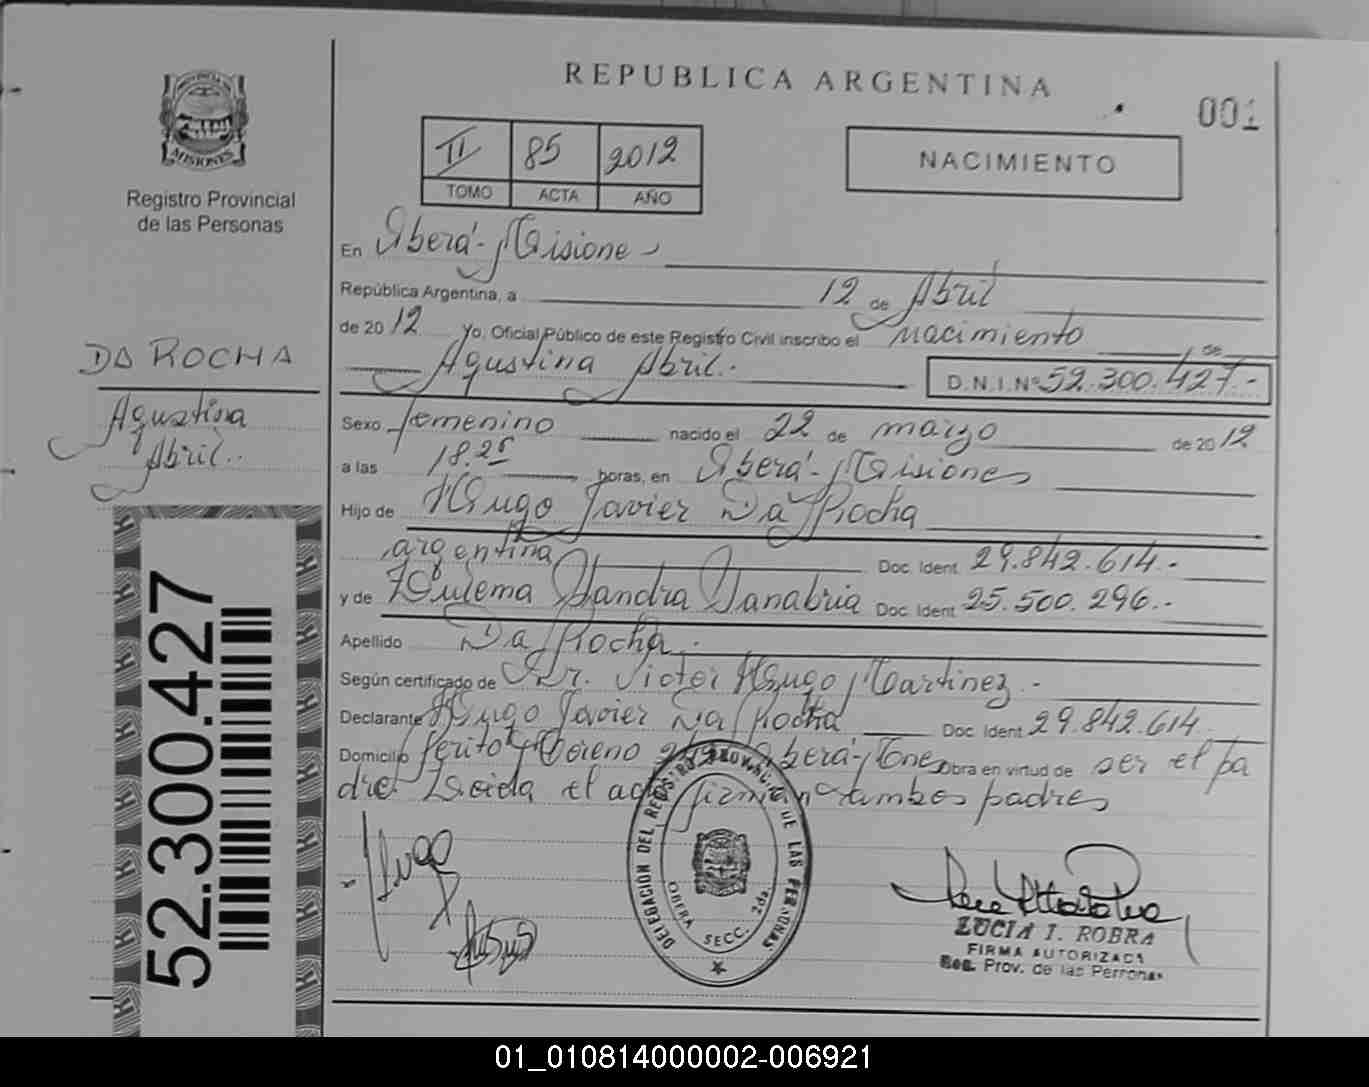 REPUBLICA ARGENTINA
001
PROVINCIA DE
MISIONES
Registro Provincial
de las Personas
II 85 2012
TOMO ACTA AÑO
NACIMIENTO
En Oberá - Misiones
República Argentina, a 12 de Abril
de 2012 Yo, Oficial Público de este Registro Civil inscribo el Nacimiento de
Agustina Abril.- D.N.I.Nº 52.300.427.-
Sexo femenino nacido el 22 de marzo de 2012
a las 18.25 horas, en Oberá - Misiones
Hijo de Hugo Javier Da Rocha
argentina Doc. Ident. 29.842.614.-
y de Zulema Sandra Sanabria Doc. Ident. 25.500.296.-
Apellido Da Rocha.-
Según certificado de Dr. Victor Hugo Martinez.-
Declarante Hugo Javier Da Rocha Doc. Ident. 29.842.614.
Domicilio Perito Moreno Oberá - Mnes Obra en virtud de ser el pa
dre. Leida el acta firman ambos padres
DA ROCHA
Agustina
Abril..
52.300.427
Hugo
DELEGACIÓN DEL REGISTRO PROVINCIAL DE LAS PERSONAS
OBERA SECC. 2da.
LUCIA I. ROBRA
FIRMA AUTORIZADA
Reg. Prov. de las Personas
01_010814000002-006921